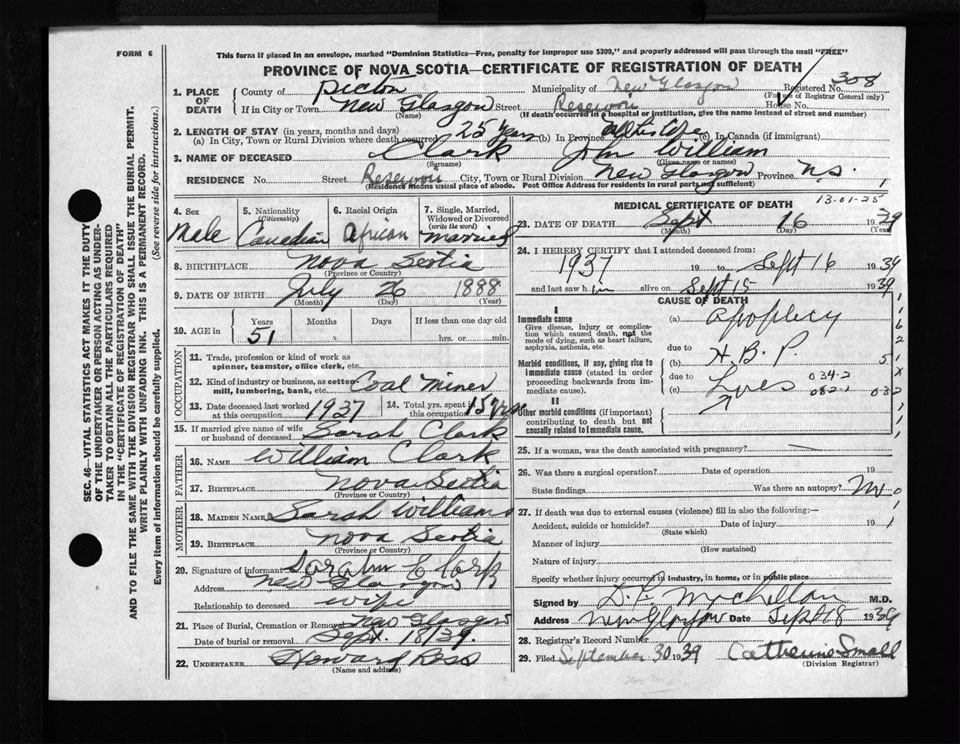 FORM 6
This form if placed in an envelope, marked "Dominion Statistics—Free, penalty for improper use $300," and properly addressed will pass through the mail "FREE"
PROVINCE OF NOVA SCOTIA—CERTIFICATE OF REGISTRATION OF DEATH
1. PLACE OF DEATH
County of Pictou Municipality of New Glasgow Registered No. 308
(For use of Registrar General only)
If in City or Town New Glasgow Street Reservoir House No.
(Name) (If death occurred in a hospital or institution, give the name instead of street and number)
2. LENGTH OF STAY (in years, months and days)
(a) In City, Town or Rural Division where death occurred 25 years (b) In Province all his life (c) In Canada (if immigrant)
3. NAME OF DECEASED Clark John William
(Surname) (Given name or names)
RESIDENCE No. Street Reservoir City, Town or Rural Division New Glasgow Province N.S.
(Residence means usual place of abode. Post Office Address for residents in rural parts not sufficient)
4. Sex Male
5. Nationality (Citizenship) Canadian
6. Racial Origin African
7. Single, Married, Widowed or Divorced (write the word) Married
8. BIRTHPLACE Nova Scotia
(Province or Country)
9. DATE OF BIRTH July 26 1888
(Month) (Day) (Year)
10. AGE in Years Months Days If less than one day old
51 hrs. or min.
OCCUPATION
11. Trade, profession or kind of work as spinner, teamster, office clerk, etc.
12. Kind of industry or business, as cotton mill, lumbering, bank, etc. Coal Miner
13. Date deceased last worked at this occupation 1937
14. Total yrs. spent in this occupation 15 yrs
15. If married give name of wife or husband of deceased Sarah Clark
FATHER
16. Name William Clark
17. Birthplace Nova Scotia
(Province or Country)
MOTHER
18. Maiden Name Sarah Williams
19. Birthplace Nova Scotia
(Province or Country)
20. Signature of informant Sarah Clark
Address New Glasgow
Relationship to deceased wife
21. Place of Burial, Cremation or Removal New Glasgow
Date of burial or removal Sept. 18/39
22. UNDERTAKER Howard Ross
(Name and address)
13-01-25 1
MEDICAL CERTIFICATE OF DEATH
23. DATE OF DEATH Sept 16 1939
(Month) (Day) (Year)
24. I HEREBY CERTIFY that I attended deceased from:
1937 19 to Sept 16 1939
and last saw h im alive on Sept 15 1939
CAUSE OF DEATH
I
Immediate cause (a) Apoplexy
Give disease, injury or complication which caused death, not the mode of dying, such as heart failure, asphyxia, asthenia, etc.
due to
Morbid conditions, if any, giving rise to immediate cause (stated in order proceeding backwards from immediate cause).
(b) H.B.P.
due to 034-2
(c) Lues 082-1 032
II
Other morbid conditions (if important) contributing to death but not causally related to Immediate cause.
25. If a woman, was the death associated with pregnancy?
26. Was there a surgical operation? Date of operation 19
State findings Was there an autopsy? No
27. If death was due to external causes (violence) fill in also the following:—
Accident, suicide or homicide? Date of injury 19
(State which)
Manner of injury
(How sustained)
Nature of injury
Specify whether injury occurred in industry, in home, or in public place
Signed by D.F. MacLellan M.D.
Address New Glasgow Date Sept 18 1939
28. Registrar's Record Number
29. Filed September 30 1939 Catherine Small
(Division Registrar)
SEC. 46—VITAL STATISTICS ACT MAKES IT THE DUTY OF THE UNDERTAKER OR PERSON ACTING AS UNDERTAKER TO OBTAIN ALL THE PARTICULARS REQUIRED IN THE "CERTIFICATE OF REGISTRATION OF DEATH" AND TO FILE THE SAME WITH THE DIVISION REGISTRAR WHO SHALL ISSUE THE BURIAL PERMIT.
WRITE PLAINLY WITH UNFADING INK. THIS IS A PERMANENT RECORD.
Every item of information should be carefully supplied. (See reverse side for instructions.)